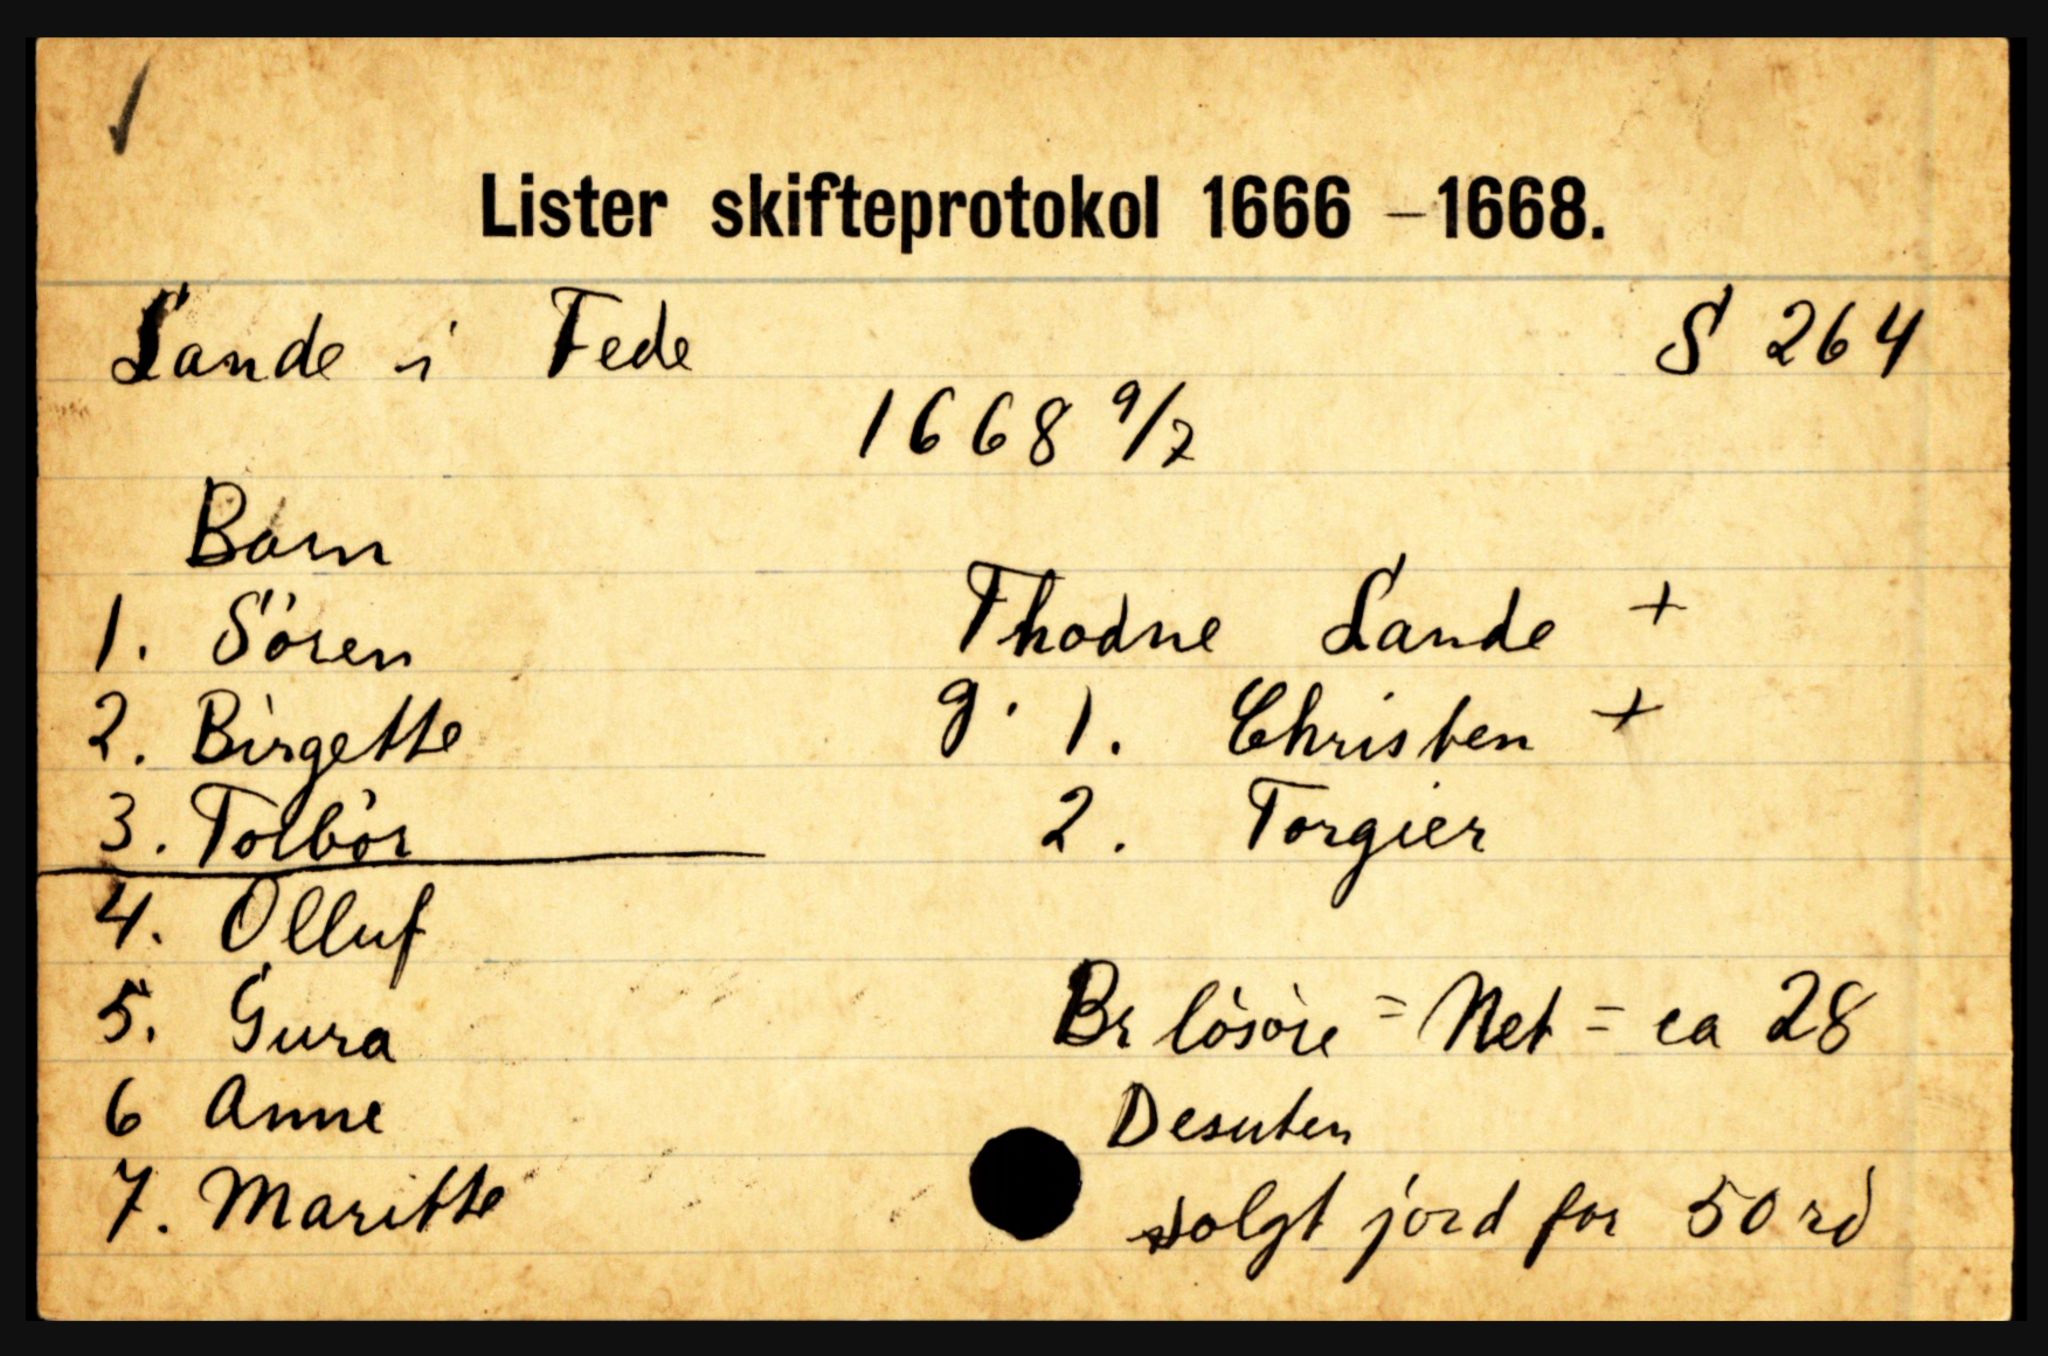 Lister skifteprotokol 1666 – 1668.
Lande i Fede S 264
1668 9/7
Barn
1. Sören
2. Birgette
3. Tolbör
4. Olluf
5. Gura
6 Anne
7. Maritte
Thodne Lande +
g. 1. Christen +
2. Torgier
Br lösöre = Net = ca 28
Desuten
solgt jord for 50 rd